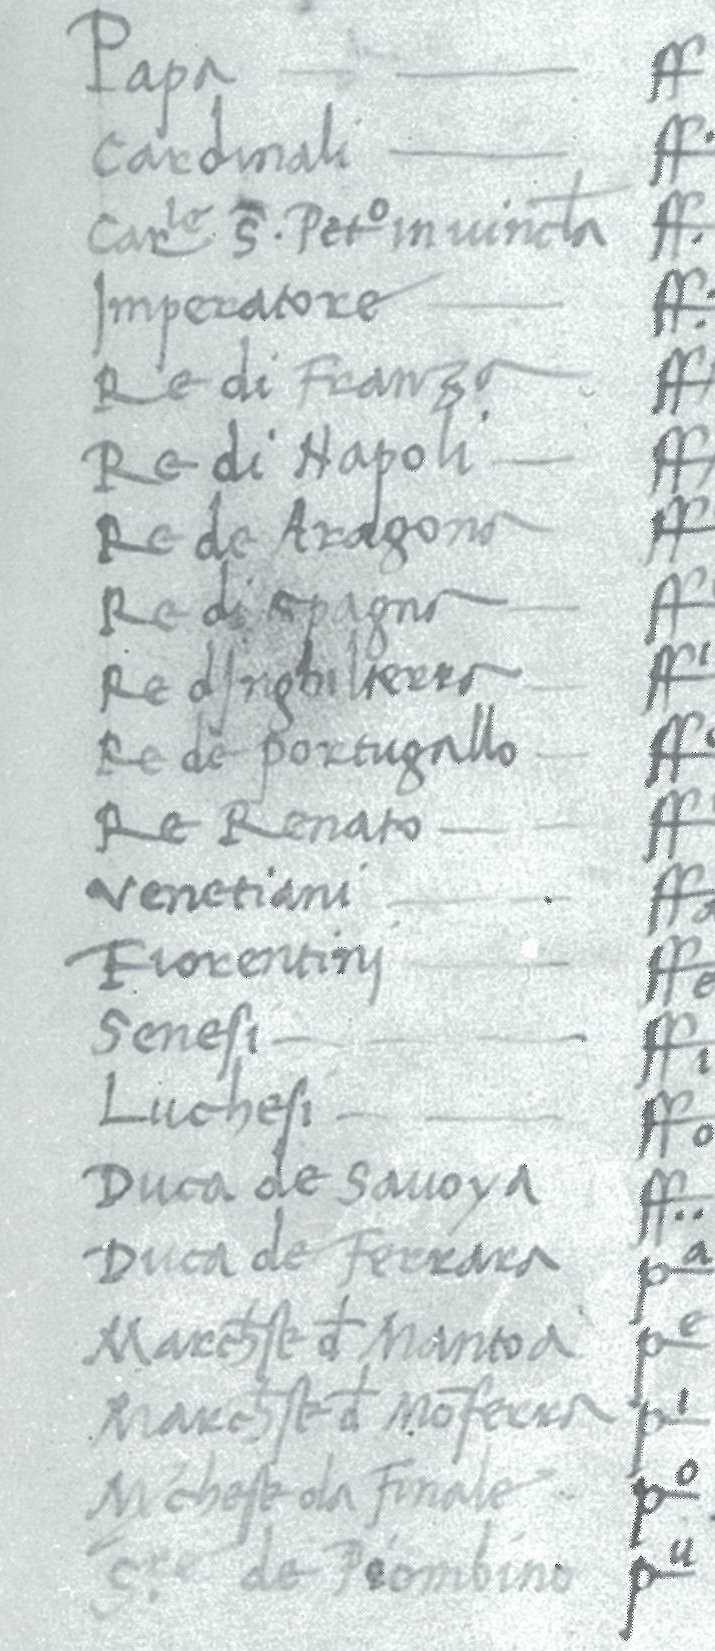 Papa ff
Cardinali ff.
Carle S. Peto in uincta ff.
Imperatore ff:
Re di Franza ff
Re di Napoli ff
Re de Aragona ff
Re di Spagna ff
Re d Inghilterra ff
Re de portugallo ff
Re Renato ff
Venetiani ff
Fiorentinj ff e
Senesi ff i
Luchesi ff o
Duca de Sauoya ff..
Duca de Ferrara p a
Marchese d Mantoa p e
Marchese d Moferra p i
Mchese da Finale p o
S.re de Piombino p u